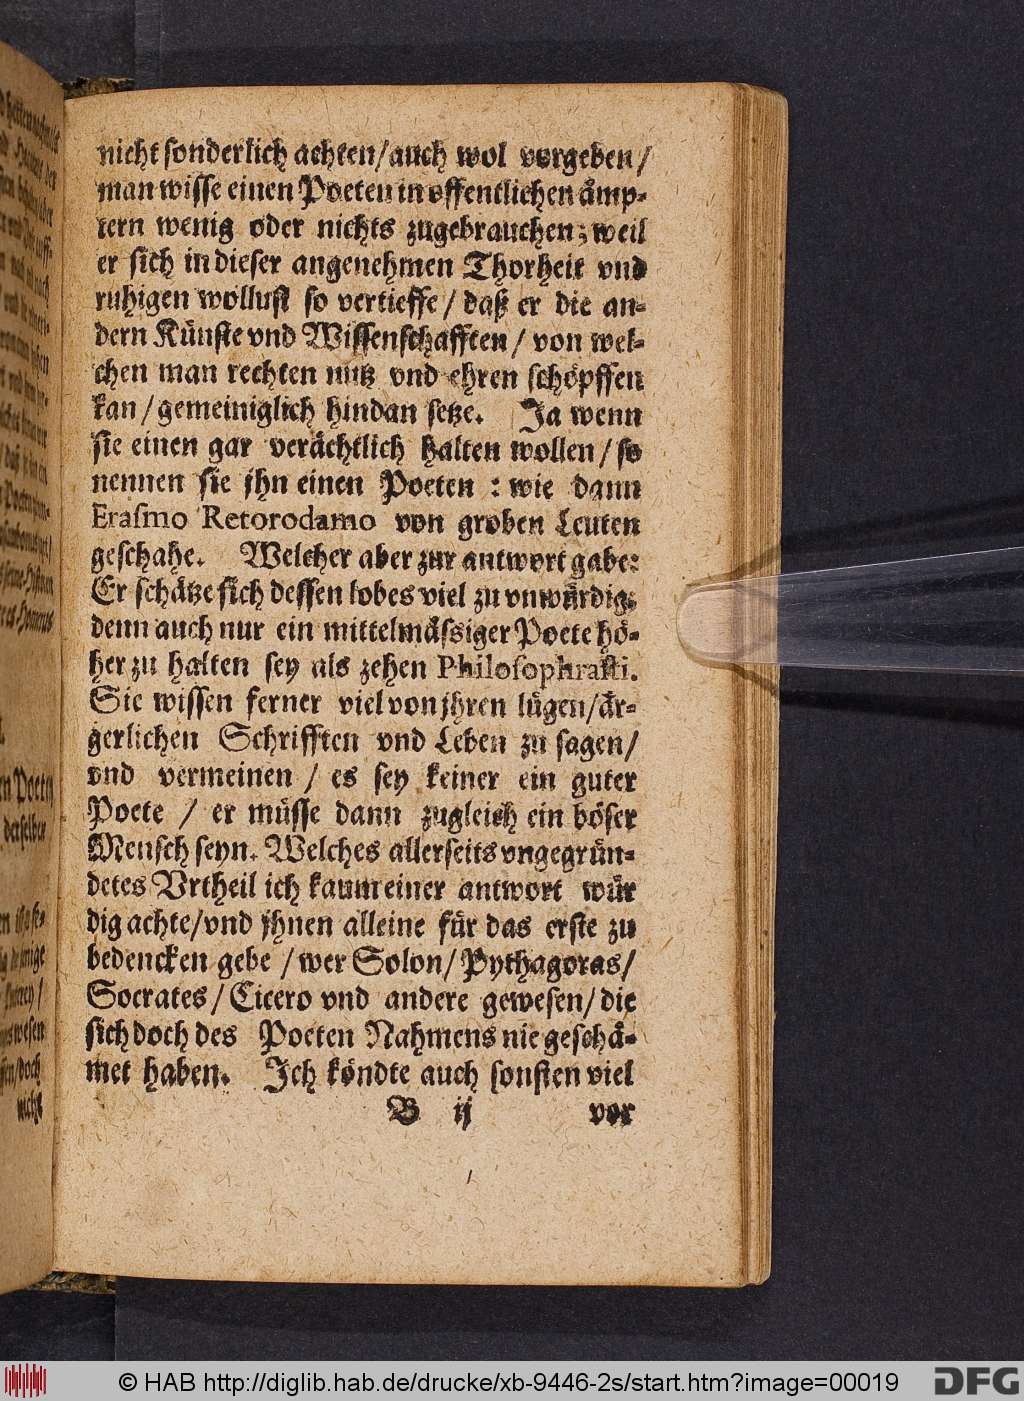 nicht sonderlich achten/auch wol vorgeben/
man wisse einen Poeten in offentlichen ämp-
tern wenig oder nichts zugebrauchen; weil
er sich in dieser angenehmen Thorheit vnd
ruhigen wollust so vertieffe/ daß er die an-
dern Künste vnd Wissenschafften/ von wel-
chen man rechten nutz vnd ehren schöpffen
kan/gemeiniglich hindan setze. Ja wenn
sie einen gar verächtlich halten wollen/ so
nennen sie jhn einen Poeten : wie dann
Erasmo Retorodamo von groben Leuten
geschahe. Welcher aber zur antwort gabe:
Er schätze sich dessen lobes viel zu vnwürdig;
denn auch nur ein mittelmässiger Poete hö-
her zu halten sey als zehen Philosophrasti.
Sie wissen ferner viel von jhren lügen/är-
gerlichen Schrifften vnd Leben zu sagen/
vnd vermeinen / es sey keiner ein guter
Poete / er müsse dann zugleich ein böser
Mensch seyn. Welches allerseits vngegrün-
detes Vrtheil ich kaum einer antwort wür
dig achte/vnd jhnen alleine für das erste zu
bedencken gebe /wer Solon/ Pythagoras/
Socrates/ Cicero vnd andere gewesen/ die
sich doch des Poeten Nahmens nie geschä-
met haben. Ich köndte auch sonsten viel
B ij vor
© HAB http://diglib.hab.de/drucke/xb-9446-2s/start.htm?image=00019
DFG